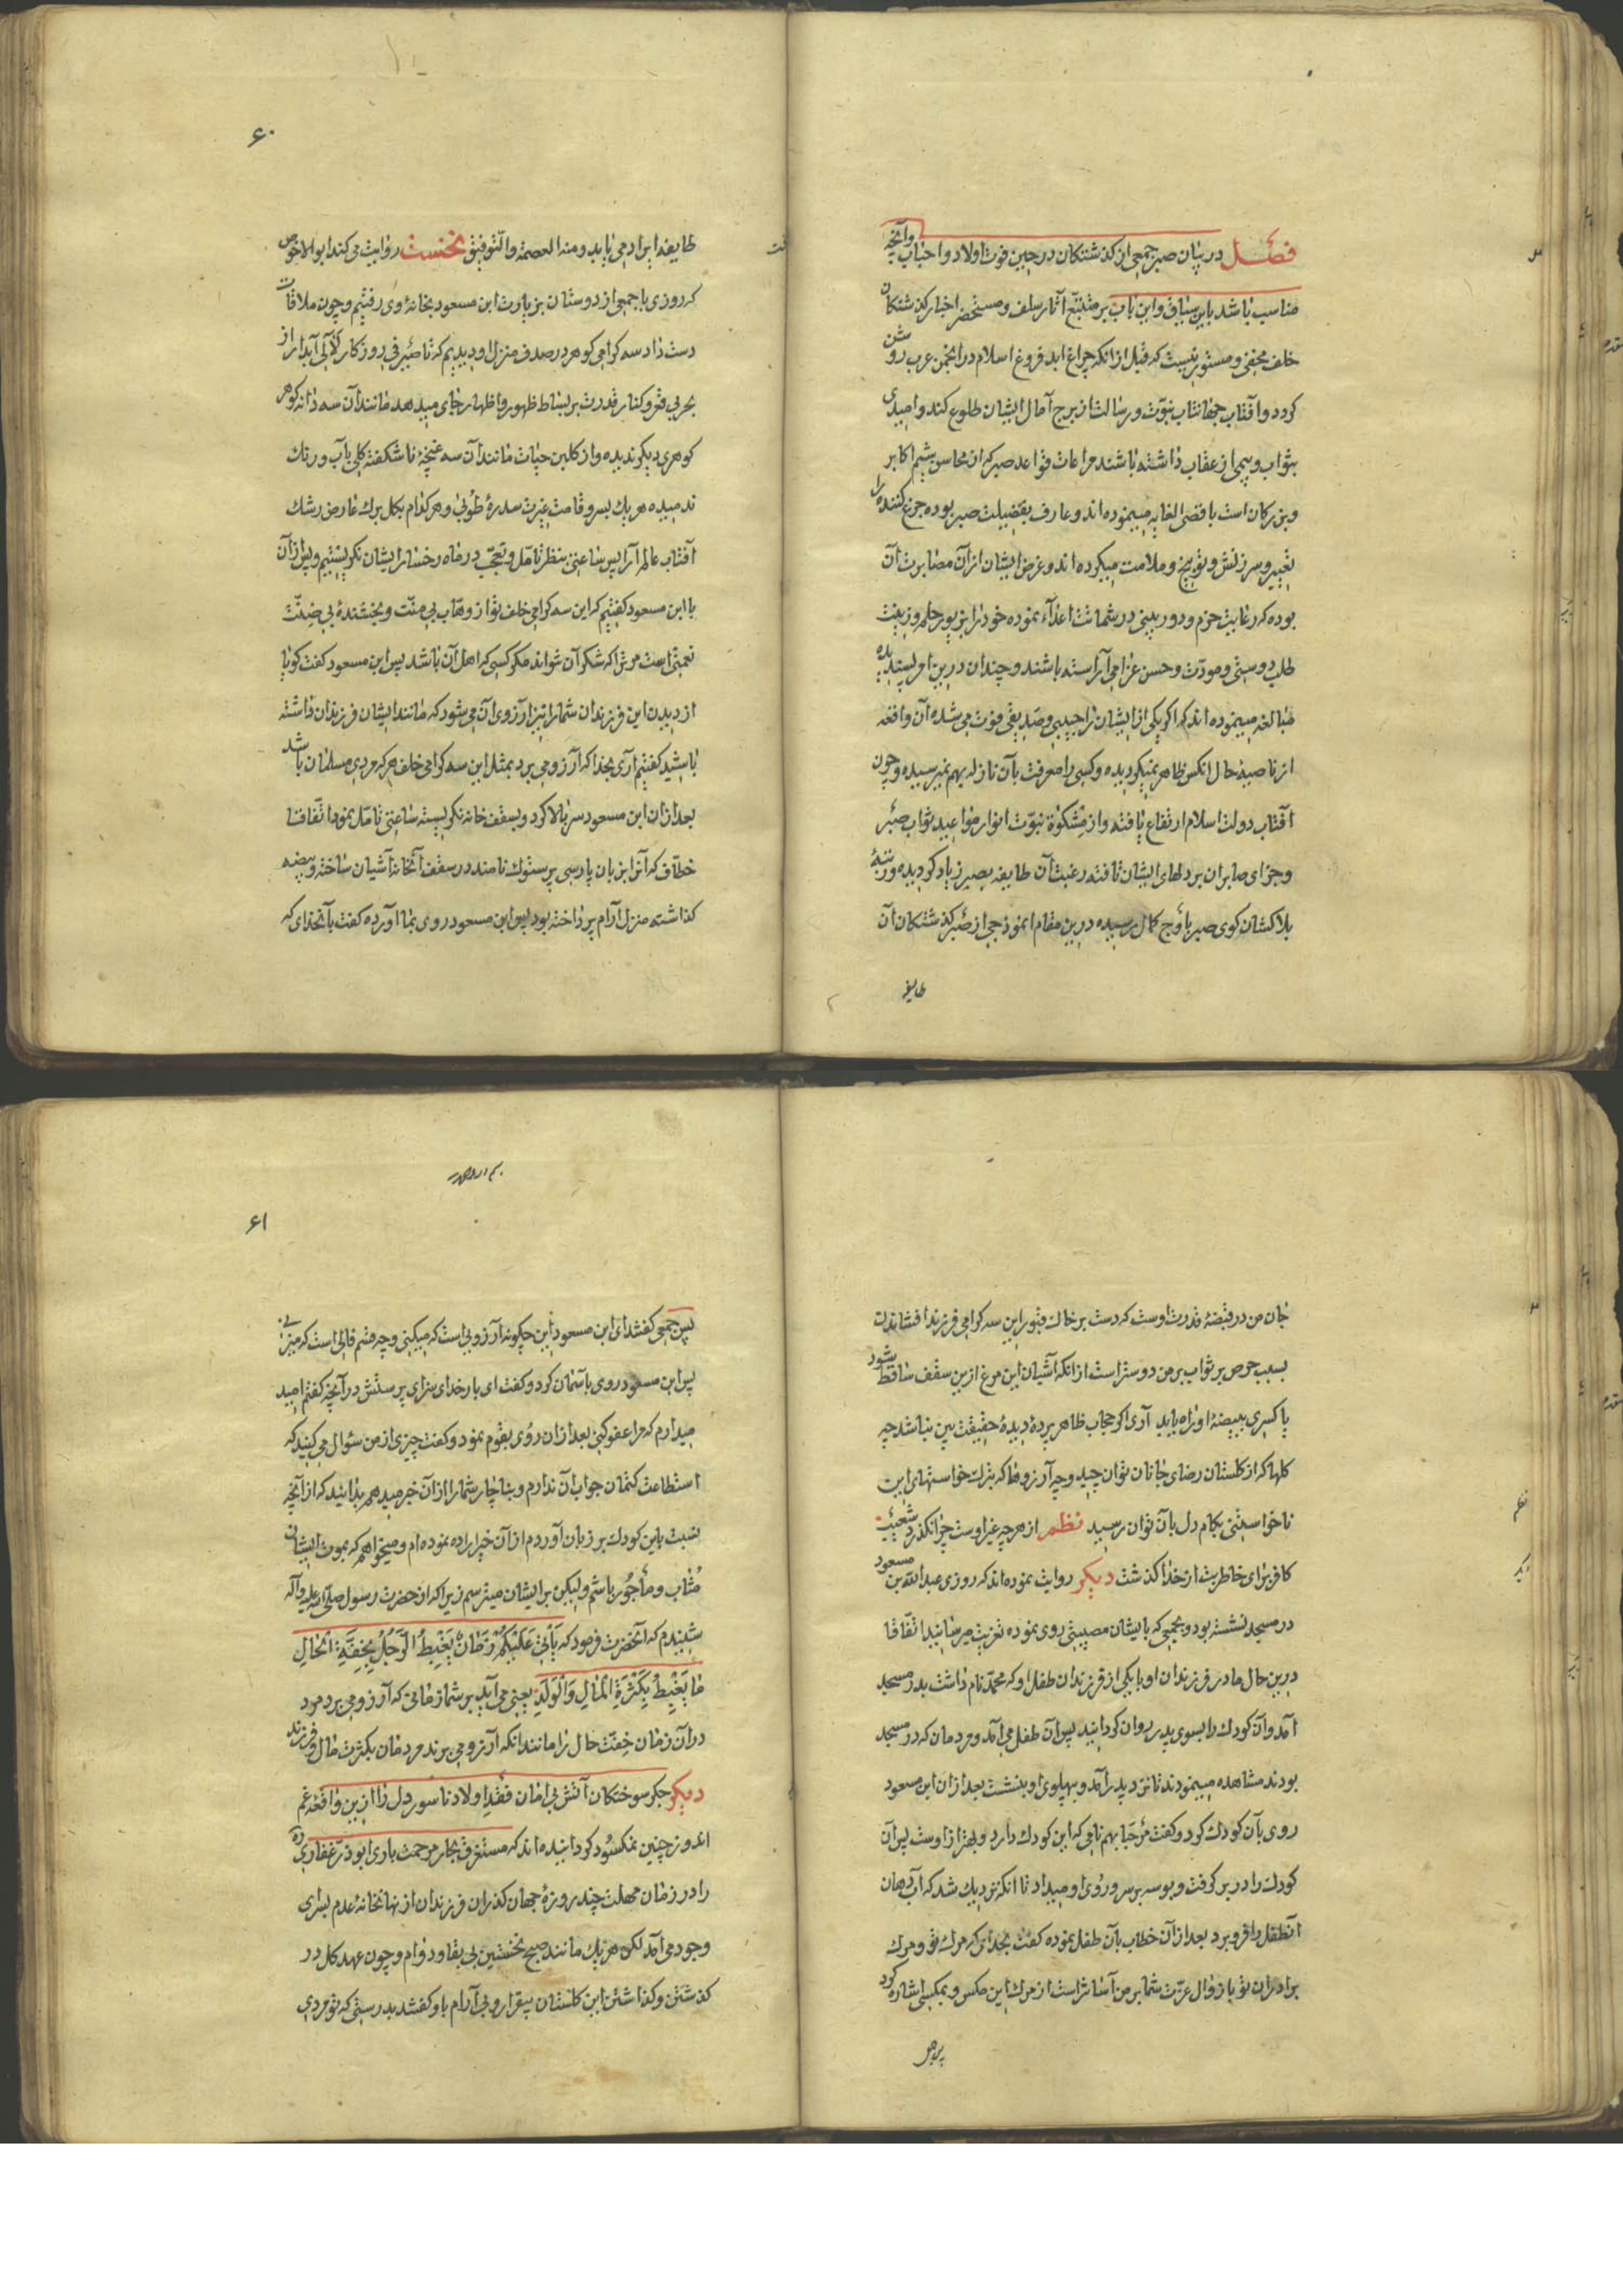 فصل در بیان صبر جمعی از کذشتکان در حین فوت اولاد و احباب وآنچه
مناسب باشد باین سیاق و این باب بر متتبّع آثار سلف و مستحضر اخبار کذشتکان
خلف مخفی و مستور نیست که قبل از انکه چراغ ابد فروغ اسلام در انجمن عرب روشن
کردد و آفتاب جهانتاب نبوّت و رسالت از برج آمال ایشان طلوع کند و امیدی
بثواب و بیمی از عقاب داشته باشند مراعات قواعد صبر که از محاسن شیم اکابر
و بزرکان است باقصی الغایه مینموده اند و عارف بفضیلت صبر بوده جزع کننده را
تغییر و سرزنش و توبیخ و ملامت میکرده اند و غرض ایشان از آن مصابرت آن
بوده که رعایت حزم و دوربینی در شماتت اعدآء نموده خود را بزیور حلم و زینت
طلب دوستی و مودّت و حسن عزا می آراسته باشند و چندان درین امر پسندیده
مبالغه مینموده اند که اکر یکی از ایشان را حبیبی و صدیقی فوت می شده آن واقعه
از ناصیهٔ حال انکس ظاهر نمیکردیده و کسی را معرفت بآن نازله بهم نمیرسیده و چون
آفتاب دولت اسلام ارتفاع یافته و از مشکوة نبوّت انوار مواعید ثواب صبر
و جزای صابران بر دلهای ایشان تافته رغبت آن طایفه بصبر زیاد کردیده و رتبهٔ
بلاکشان کوی صبر باوج کمال رسیده درین مقام انموذجی از صبر کذشتکان آن
طایفه
۶۰
طایفه ایراد می یابد و منه العصمة والتّوفیق نخست روایت می کند ابوالاحوص
که روزی با جمعی از دوستان بزیارت ابن مسعود بخانهٔ وی رفتیم و چون ملاقات
دست داد سه کرامی کوهر در صدف منزل او دیدیم که تا صیرفی روزکار لآلی آبدار از
بحر بی قعر و کنار قدرت بر بساط ظهور و اظهار جای میدهد مانند آن سه دانه کوهر
کوهری دیکر ندیده و از کلبن حیات مانند آن سه غنچهٔ ناشکفته کلی بآب و رنک
ندمیده هر یک بسرو قامت غیرت سدرهٔ طوبی و هر کدام بکل برک عارض رشک
آفتاب عالم آرا پس ساعتی بنظر تامّل و تعجّب در ماه رخسار ایشان نکریستیم و پس از آن
با ابن مسعود کفتیم که این سه کرامی خلف تو از وهّاب بی منّت و بخشندهٔ بی ضنّت
نعمتی است مر ترا که شکر آن نتواند مکر کسی که اهل آن باشد پس ابن مسعود کفت کویا
از دیدن این فرزندان شما را نیز آرزوی آن می شود که مانند ایشان فرزندان داشته
باشید کفتیم آری بخدا که آرزو می برد بمثل این سه کرامی خلف هر که مردی مسلمان باشد
بعد ازان ابن مسعود سر بالا کرد و بسقف خانه نکریسته ساعتی تامّل نمود اتّفاقا
خطّاف که آنرا بزبان پارسی پرستوک نامند در سقف آنخانه آشیان ساخته و بیضه
کذاشته منزل آرام پرداخته بود پس ابن مسعود روی بما آورده کفت بآنخدای که
جان من در قبضهٔ قدرت اوست که دست بر خاک قبور این سه کرامی فرزند افشاندن
بسبب حرص بر ثواب بر من دوستر است از انکه آشیان این مرغ ازین سقف ساقط شود
یا کسری ببیضهٔ او راه یابد آری اکر حجاب ظاهر پردهٔ دیدهٔ حقیقت بین نباشد چه
کلها که از کلستان رضای جانان توان چید و چه آرزوها که بترک خواستهای این
ناخواستنی بکام دل بآن توان رسید نظم از هر چه غیر اوست چرا نکذرد شعیب
کافر برای خاطر بت از خدا کذشت دیکر روایت نموده اند که روزی عبدالله بن مسعود
در مسجد نشسته بود و بجمعی که بایشان مصیبتی روی نموده تعزیت میرسانید اتّفاقا
درین حال مادر فرزندان او با یکی از فرزندان طفل او که محمّد نام داشت بدر مسجد
آمد و آن کودک را بسوی پدر روان کردانید پس آن طفل می آمد و مردمان که در مسجد
بودند مشاهده مینمودند تا نزد پدر آمد و بپهلوی او بنشست بعد ازان ابن مسعود
روی بآن کودک کرد و کفت مرحبا بهم نامی که این کودک دارد و بهتر از اوست پس آن
کودک را در بر کرفت و بوسه بر سر و روی او میداد تا انکه نزدیک شد که آب دهان
آنطفل را فرو برد بعد از آن خطاب بآن طفل نموده کفت بخدای که مرک تو و مرک
برادران تو با زوال عزّت شما بر من آسانتر است از مرک این مکس و بمکسی اشاره کرد
۶۱
پس جمعی کفتند ای ابن مسعود این چکونه آرزویی است که میکنی و چه قسم فالی است که میزنی
پس ابن مسعود روی بآسمان کرد و کفت ای بار خدای سزای پرستش در آنچه کفتم امید
میدارم که مرا عفو کنی بعد ازان روی بقوم نمود و کفت چیزی از من سئوال می کنید که
استطاعت کتمان جواب آن ندارم و بناچار شما را از آن خبر میدهم بدانید که از آنچه
نسبت باین کودک بر زبان آوردم از آن خیر اراده نموده ام و میخواهم که بموت ایشان
مثاب و مأجور باشم و لیکن بر ایشان میترسم زیرا که از حضرت رسول صلّی الله علیه وآله
شنیدم که آنحضرت فرمود که یَأْتِی عَلَیْکُمْ زَمَانٌ یَغْبِطُ الرَّجُلُ بِخِفَّةِ الْحَالِ
مَا یَغْبِطُ بِکَثْرَةِ الْمَالِ وَالْوَلَدِ یعنی می آید بر شما زمانی که آرزو می برد مرد
در آن زمان خفّت حال را مانند انکه آرزو می برند مردمان بکثرت مال و فرزند
دیکر جکر سوختکان آتش بی امان فقد اولاد ناسور دل را ازین واقعه غم
اندوز چنین نمکسود کردانیده اند که مستغرق بحار مرحمت باری ابوذرّ غفاری ره
را در زمان مهلت چند روزهٔ جهان کذران فرزندان از نهانخانهٔ عدم بسرای
وجود می آمد لکن هر یک مانند صبح نخستین بی بقا و دوام و چون عهد کل در
کذشتن و کذاشتن این کلستان بیقرار و بی آرام باو کفتند بدرستی که تو مردی